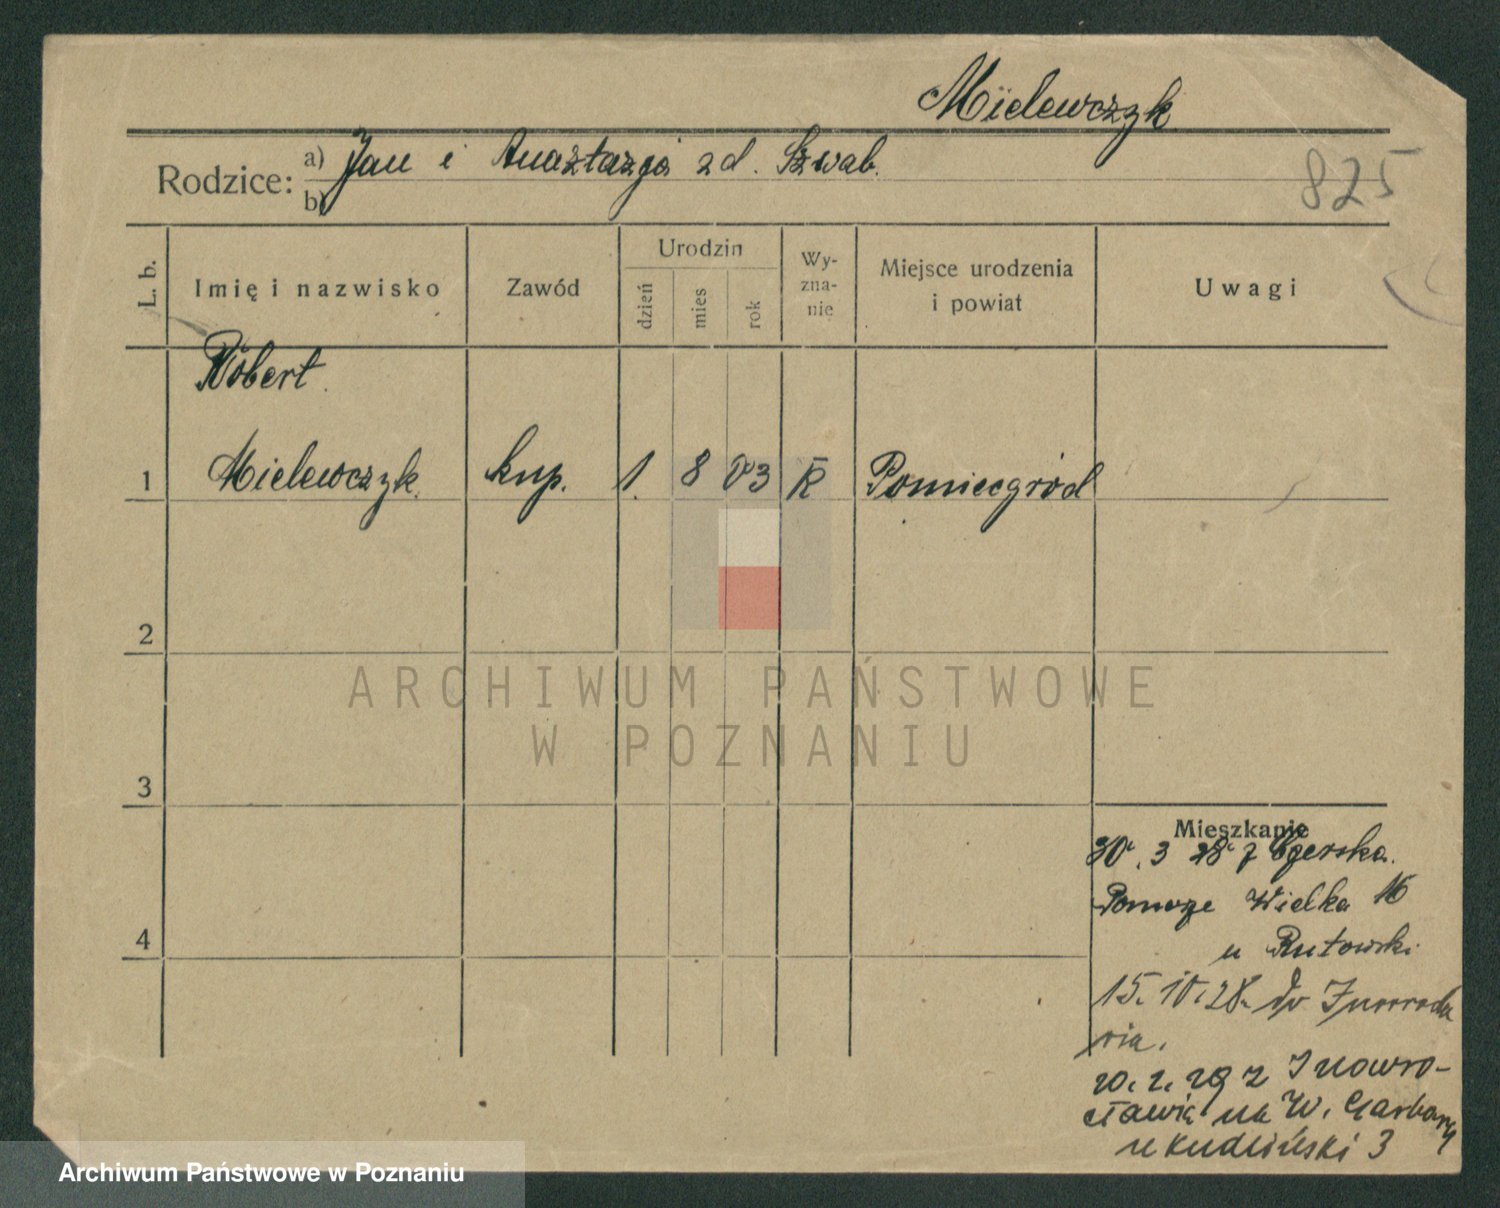 Mielewczyk
Rodzice: a) Jan i Anastazja zd. Szwab.
b)
825
L. b.
Imię i nazwisko
Zawód
Urodzin
dzień
mies
rok
Wy-
zna-
nie
Miejsce urodzenia
i powiat
Uwagi
Robert
1 Mielewczyk. kup. 1. 8 03 K Pomieczgród
2
3
4
ARCHIWUM PAŃSTWOWE
W POZNANIU
Mieszkanie
30. 3 28 z Czerska.
Pomorze Wielka 16
u Rutowski.
15. 10. 28. do Inowrocła
wia.
20. 2. 29 z Inowro-
cławia na W. Garbary
u Kudliński 3
Archiwum Państwowe w Poznaniu